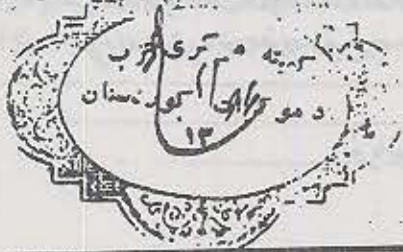 کمیته مرکزی حزب
دموکرات کوردستان
۱۳